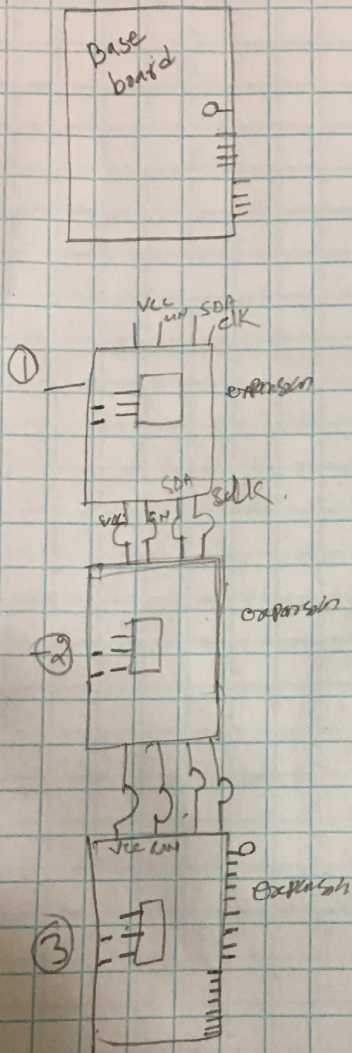 Base
board
VCC GN SDA
clk
①
expansion
SDA
VCC GN sclk.
②
expansion
VCC GN
expansion
③